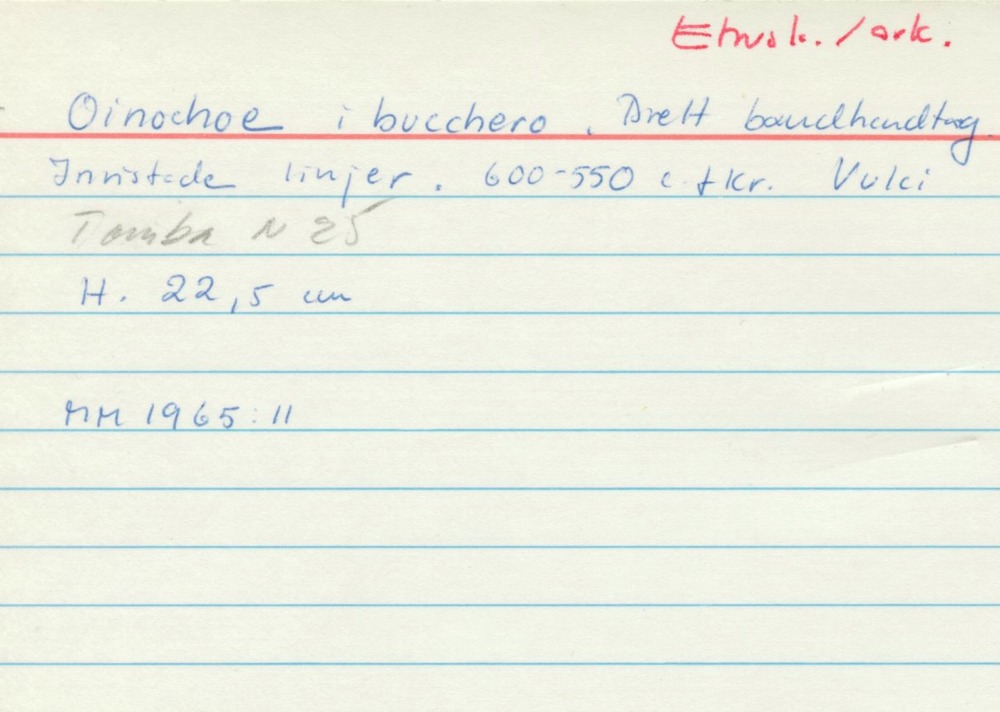 Etrusk. / ark.
Oinochoe i bucchero. Brett bandhandtag.
Innistade linjer. 600-550 c f Kr. Vulci
Tomba N 25
H. 22,5 cm
MM 1965:11